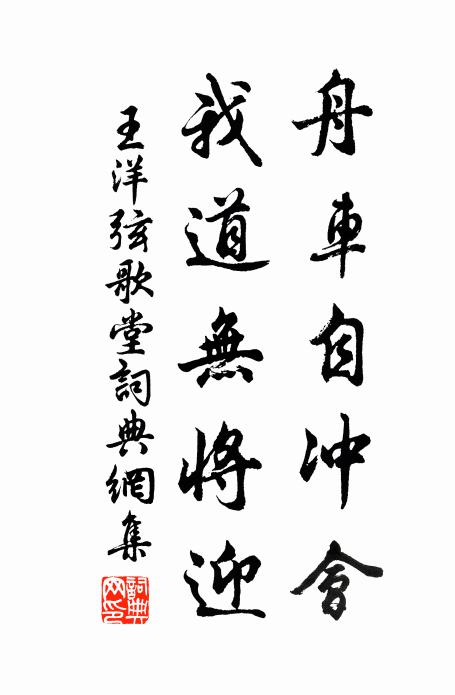 舟車自冲會
我道無將迎
王洋弦歌堂詞典網集
詞典網印